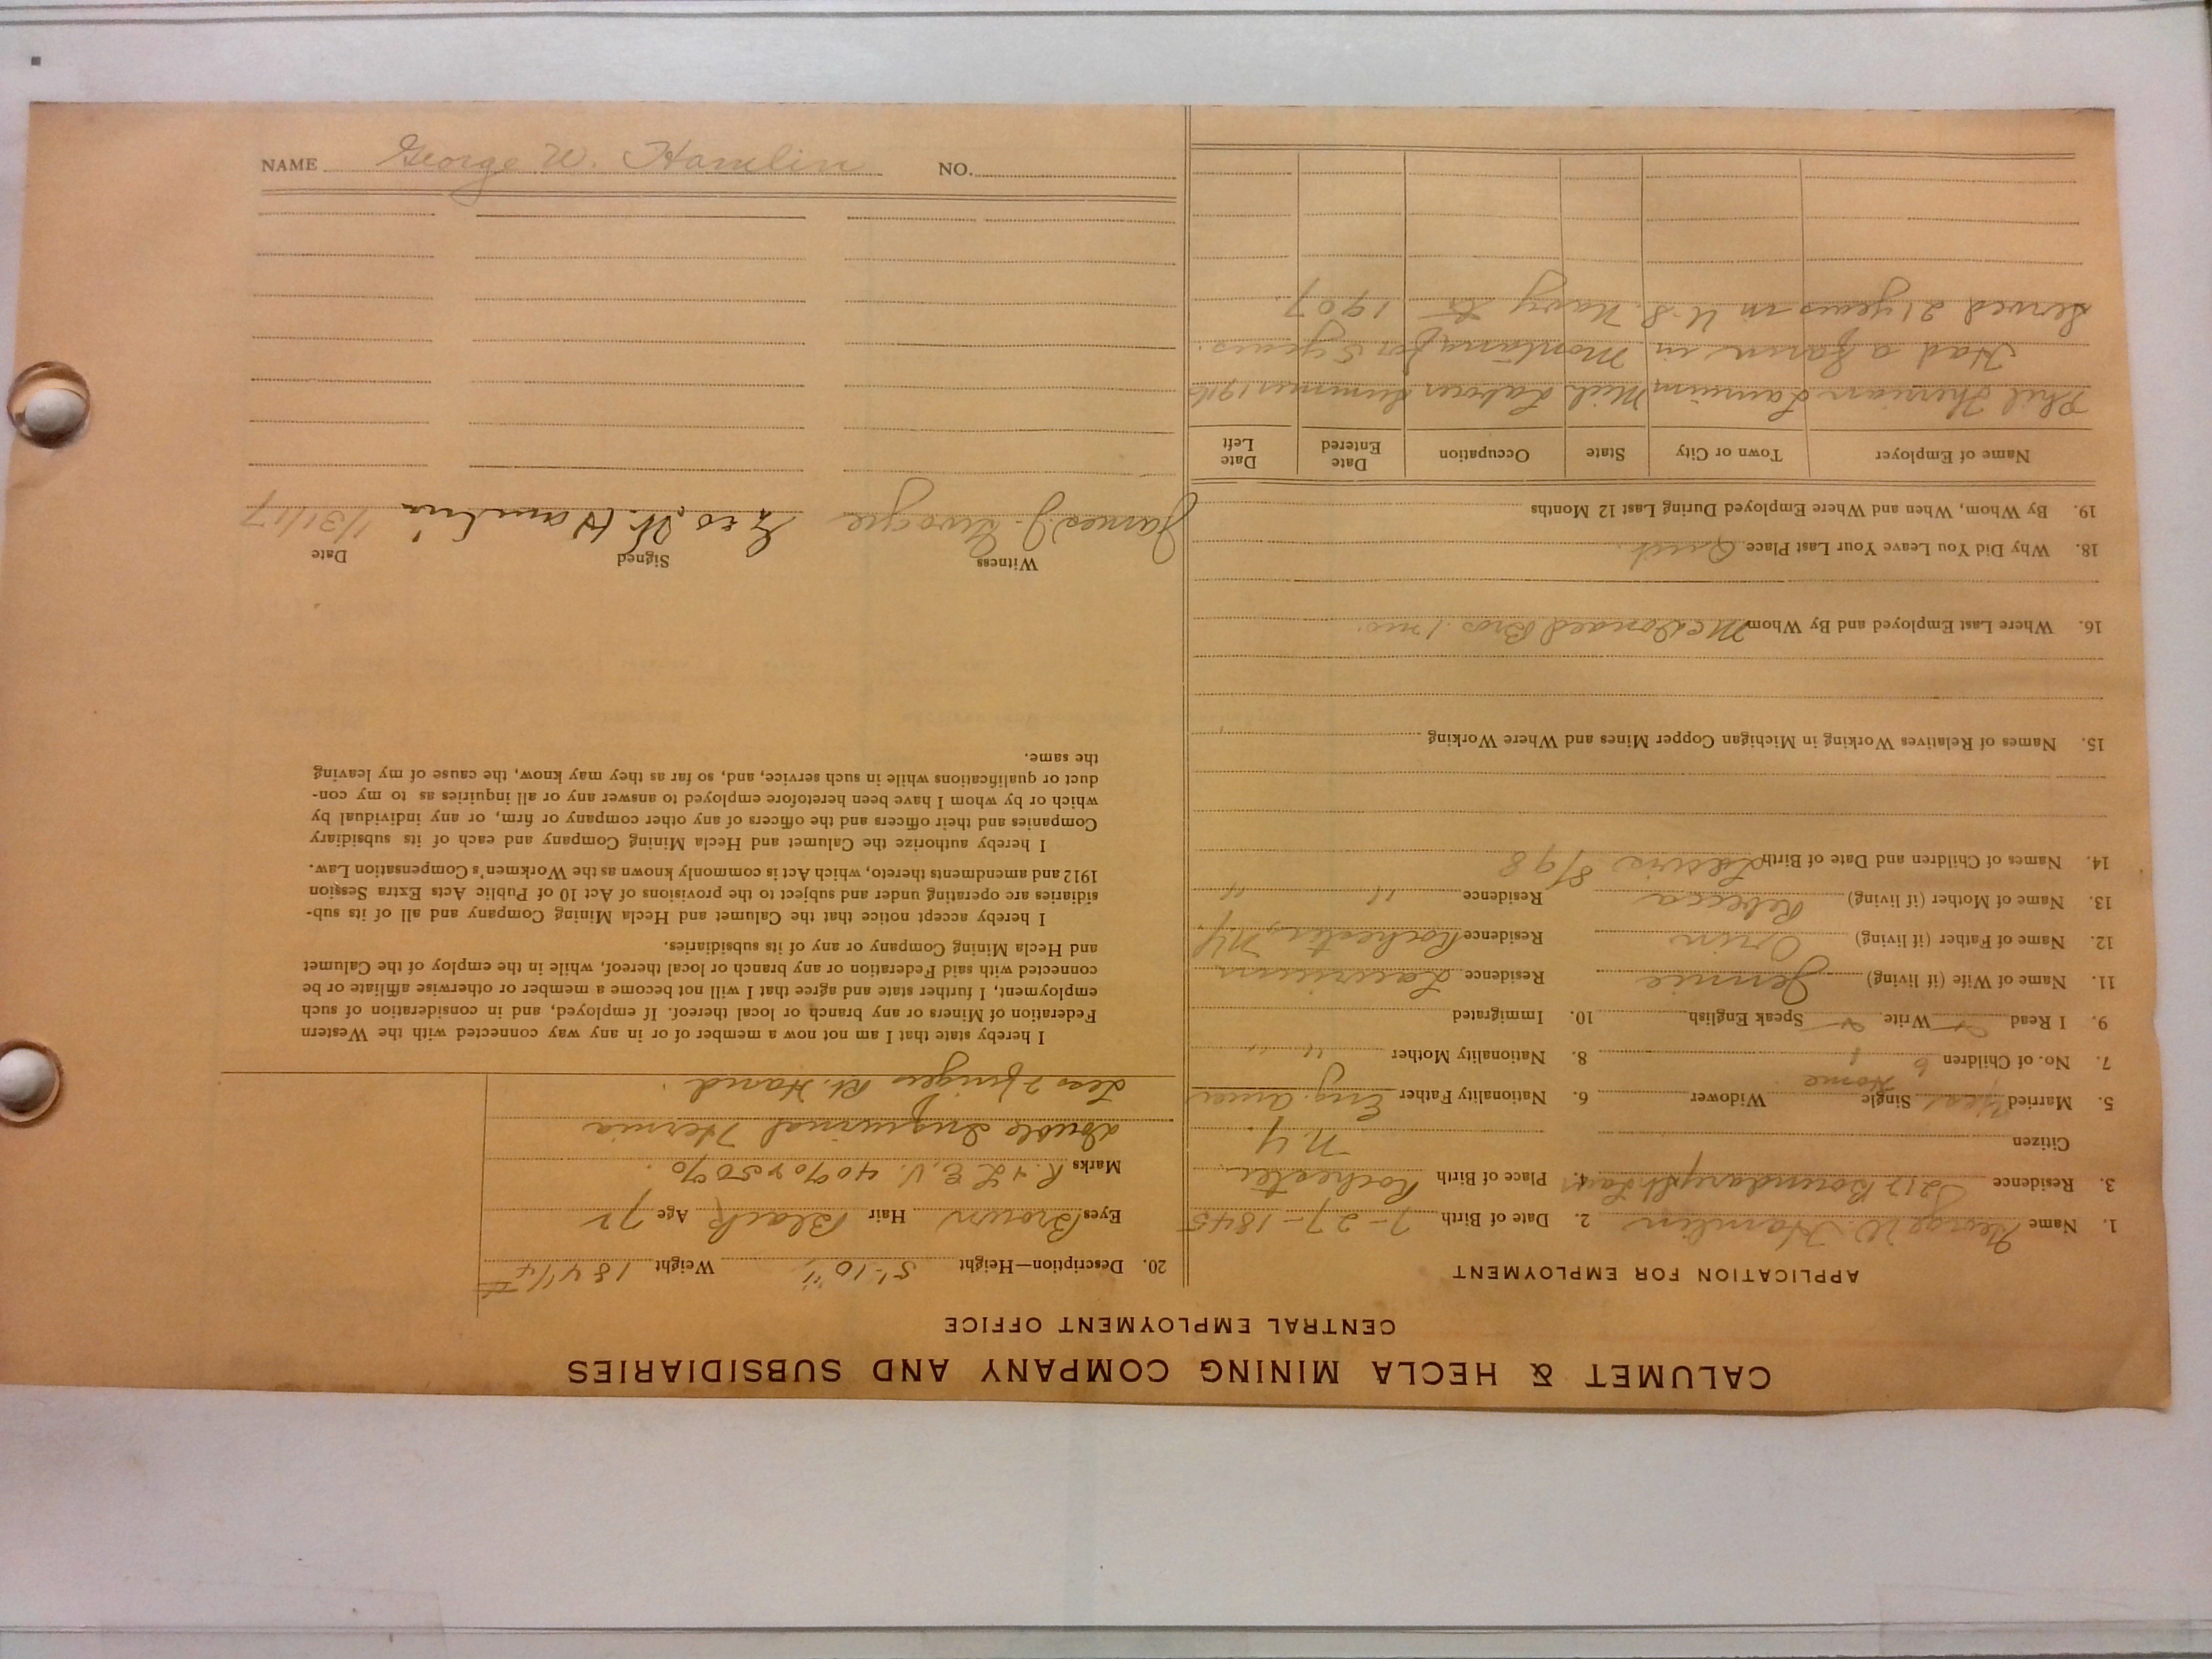 CALUMET & HECLA MINING COMPANY AND SUBSIDIARIES
CENTRAL EMPLOYMENT OFFICE
APPLICATION FOR EMPLOYMENT
1. Name George W. Hamlin 2. Date of Birth 7-27-1845
3. Residence 5217 Boundary St. 4. Place of Birth Rochester
Citizen N.Y.
5. Married Yes Single Widower 6. Nationality Father Eng. Amer
Home
7. No. of Children 1 8. Nationality Mother " "
9. I Read Write Speak English 10. Immigrated
11. Name of Wife (if living) Jennie Residence Laurium
12. Name of Father (if living) Orrin Residence Rochester, N.Y.
13. Name of Mother (if living) Rebecca Residence " "
14. Names of Children and Date of Birth 8/98
15. Names of Relatives Working in Michigan Copper Mines and Where Working
16. Where Last Employed and By Whom McDonald Bros. 1 mo.
18. Why Did You Leave Your Last Place Quit.
19. By Whom, When and Where Employed During Last 12 Months
Name of Employer Town or City State Occupation Date Entered Date Left
Phil Therrian Laurium Mich Laborer Summer 1916
Had a farm in Montana for 5 years.
Served 21 years in U.S. Navy to 1907.
20. Description—Height 5'-10" Weight 184 1/4 #
Eyes Brown Hair Black Age 72
Marks R. & L. E. V. 40% & 50%.
double Inguinal Hernia
Less 2 fingers Rt. Hand.
I hereby state that I am not now a member of or in any way connected with the Western
Federation of Miners or any branch or local thereof. If employed, and in consideration of such
employment, I further state and agree that I will not become a member or otherwise affiliate or be
connected with said Federation or any branch or local thereof, while in the employ of the Calumet
and Hecla Mining Company or any of its subsidiaries.
I hereby accept notice that the Calumet and Hecla Mining Company and all of its sub-
sidiaries are operating under and subject to the provisions of Act 10 of Public Acts Extra Session
1912 and amendments thereto, which Act is commonly known as the Workmen's Compensation Law.
I hereby authorize the Calumet and Hecla Mining Company and each of its subsidiary
Companies and their officers and the officers of any other company or firm, or any individual by
which or by whom I have been heretofore employed to answer any or all inquiries as to my con-
duct or qualifications while in such service, and, so far as they may know, the cause of my leaving
the same.
Witness Signed Date
James J. Geo. W. Hamlin 1/31/17
NAME George W. Hamlin NO.